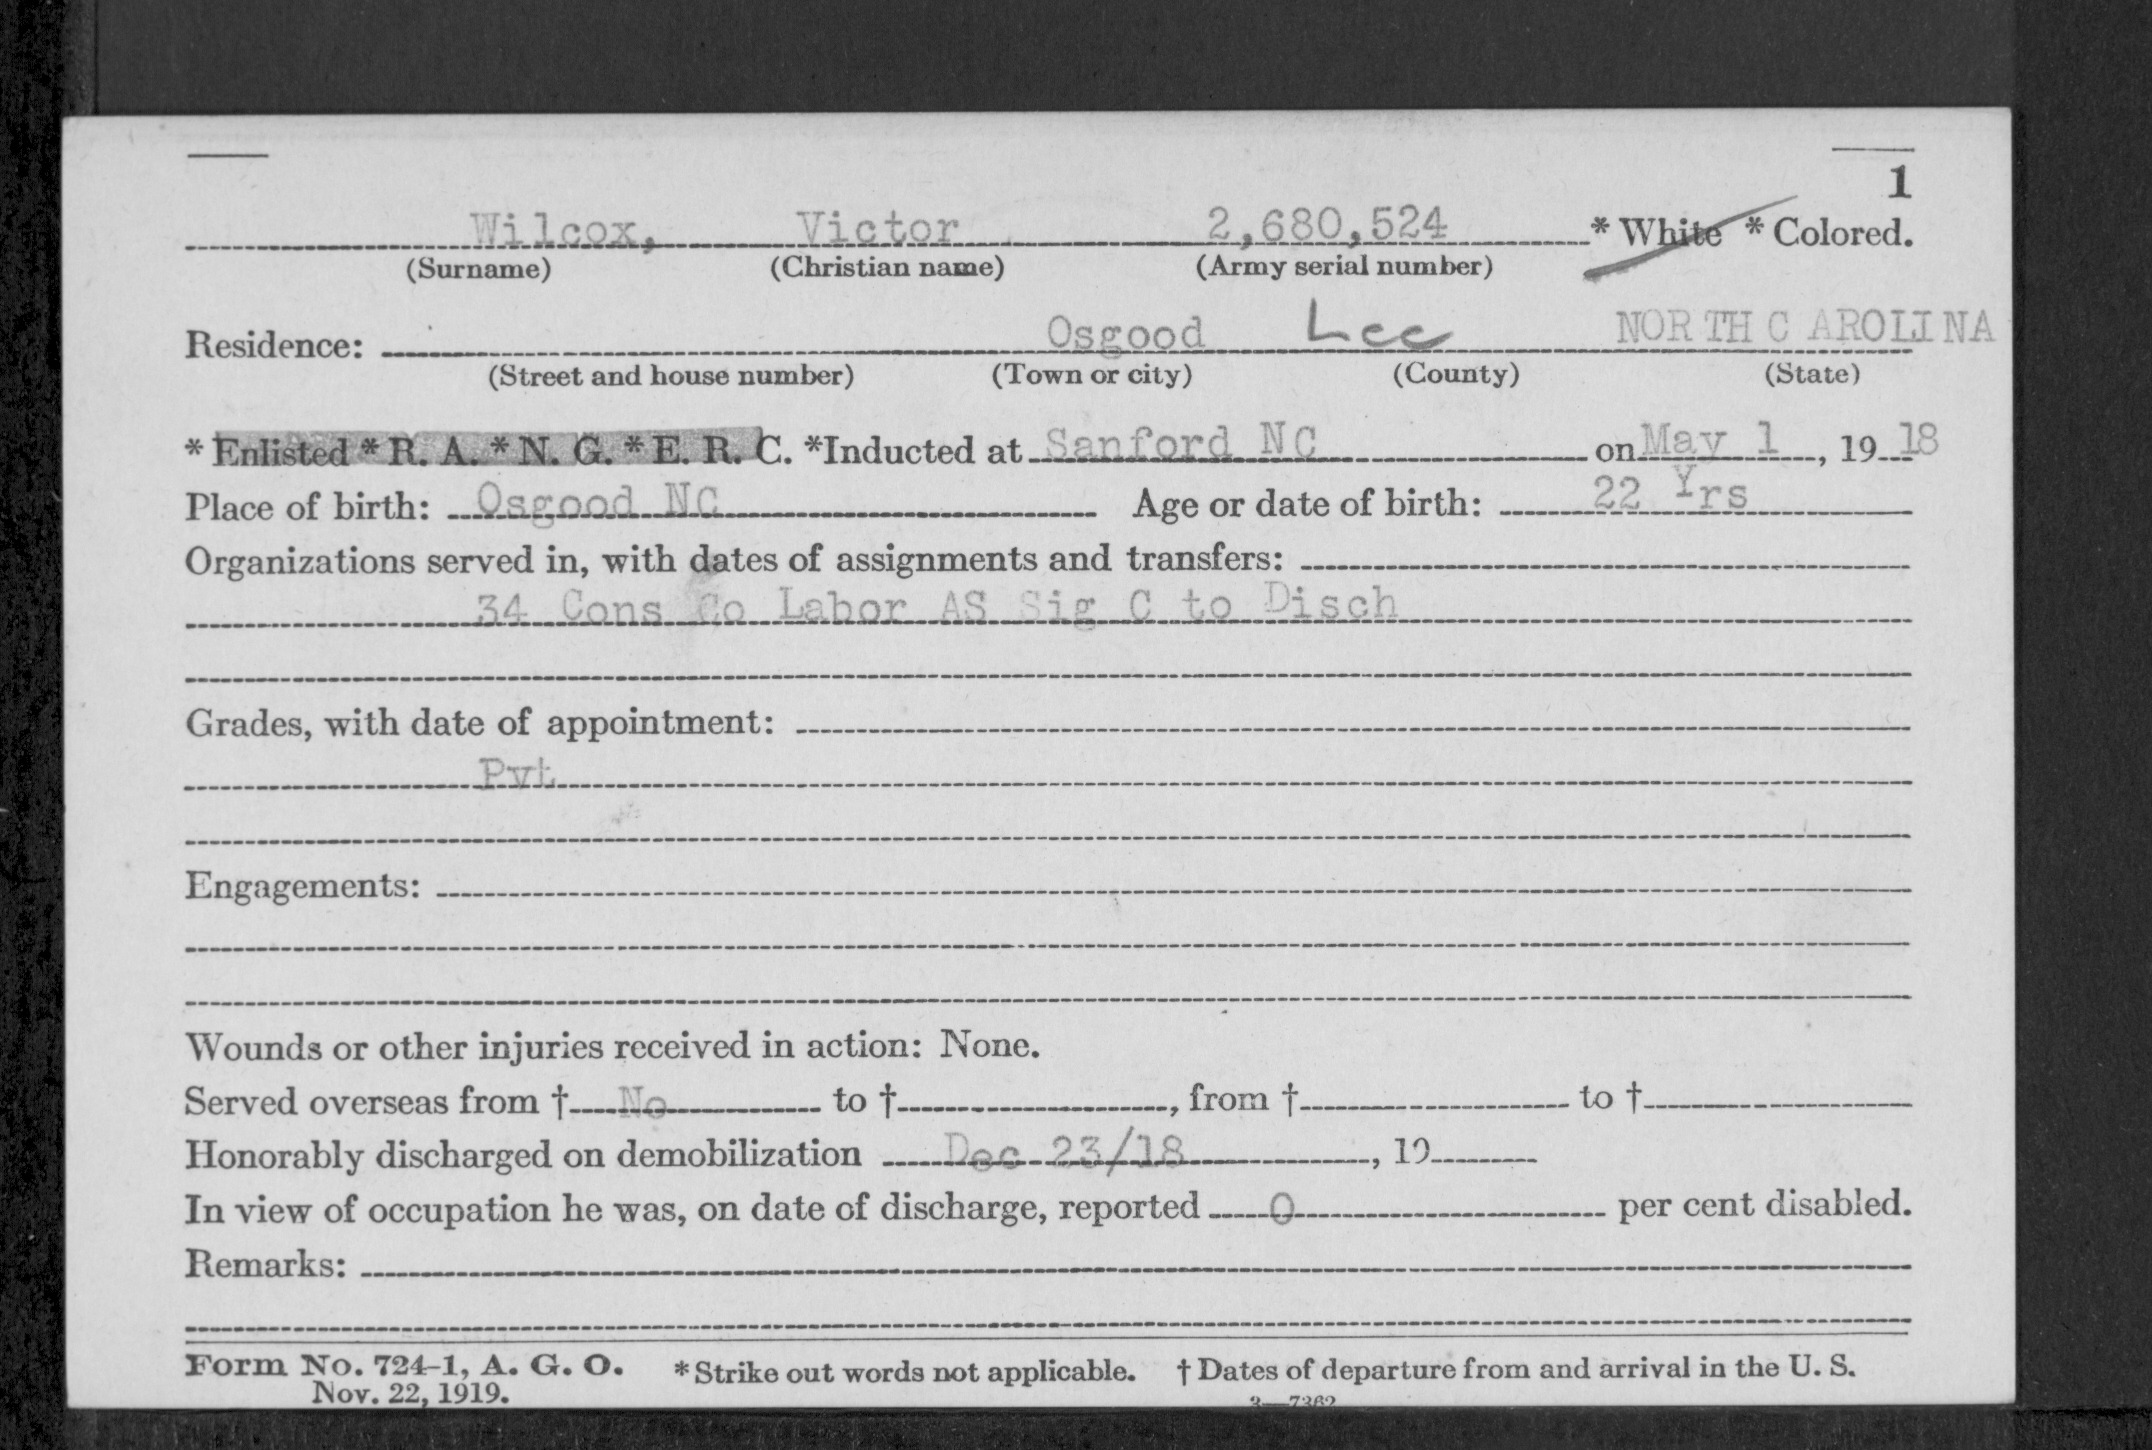 1
Wilcox, Victor 2,680,524 * White * Colored.
(Surname) (Christian name) (Army serial number)
Residence: Osgood Lee NORTH CAROLINA
(Street and house number) (Town or city) (County) (State)
* Enlisted * R. A. * N. G. * E. R. C. *Inducted at Sanford NC on May 1, 19 18
Place of birth: Osgood NC Age or date of birth: 22 Yrs
Organizations served in, with dates of assignments and transfers:
34 Cons Co Labor AS Sig C to Disch
Grades, with date of appointment:
Pvt
Engagements:
Wounds or other injuries received in action: None.
Served overseas from † No to †, from † to †
Honorably discharged on demobilization Dec 23/18, 19
In view of occupation he was, on date of discharge, reported 0 per cent disabled.
Remarks:
Form No. 724-1, A. G. O. * Strike out words not applicable. † Dates of departure from and arrival in the U. S.
Nov. 22, 1919.
3—7362